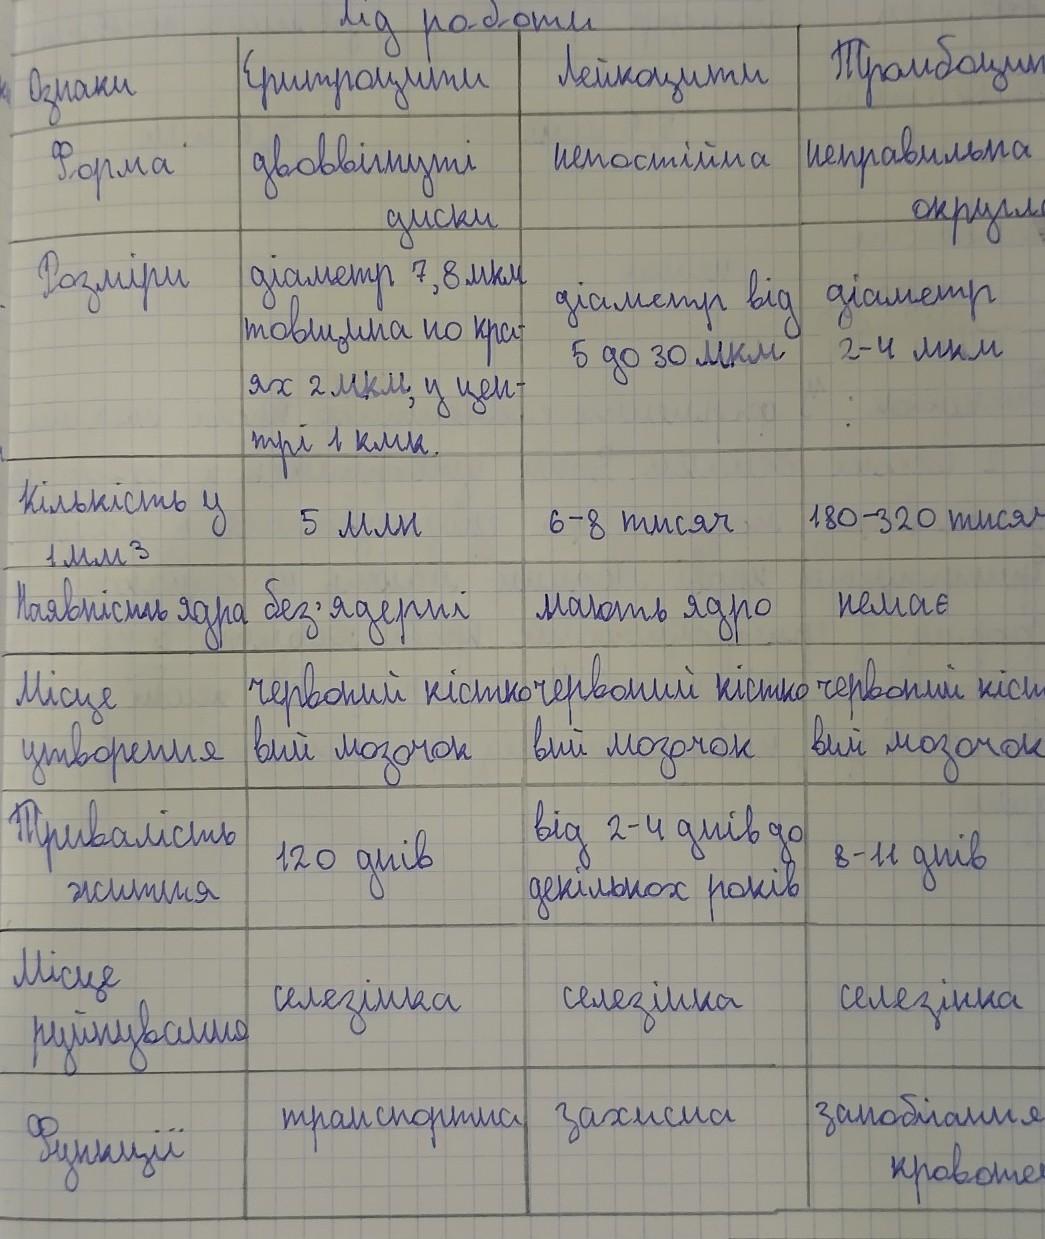 Хід роботи
Ознаки Еритроцити Лейкоцити Тромбоцит
Форма двоввігнуті диски непостійна неправильна округл
Розміри діаметр 7,8 мкм
товщина по кра-
ях 2 мкм, у цен-
трі 1 кмк.
діаметр від
5 до 30 мкм
діаметр
2-4 мкм
Кількість у
1 мм3
5 млн
6-8 тисяч
180-320 тисяч
Наявність ядра без'ядерні мають ядро немає
Місце
утворення
червоний кістко
вий мозочок
червоний кістко
вий мозочок
червоний кіст
вий мозочок
Тривалість
життя
120 днів
від 2-4 днів до
декількох років
8-11 днів
Місце
руйнування
селезінка
селезінка
селезінка
Функції
транспортна
захисна
запобігання
кровоте